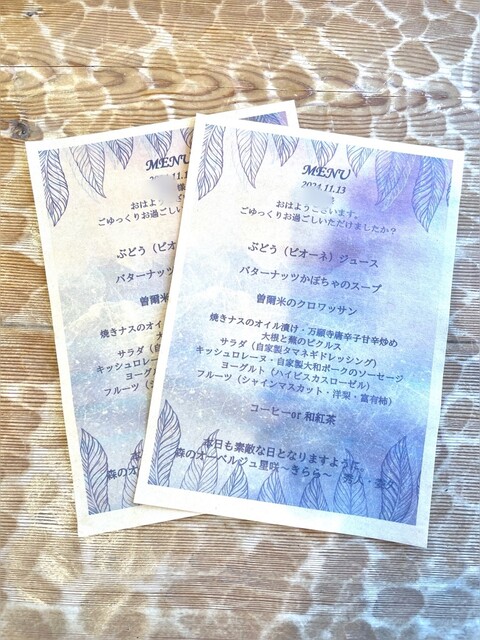 MENU
2024.11.13
おはようございます。
ごゆっくりお過ごしいただけましたか？
ぶどう（ピオーネ）ジュース
バターナッツかぼちゃのスープ
曽爾米のクロワッサン
焼きナスのオイル漬け・万願寺唐辛子甘辛炒め
大根と蕪のピクルス
サラダ（自家製タマネギドレッシング）
キッシュロレーヌ・自家製大和ポークのソーセージ
ヨーグルト（ハイビスカスローゼル）
フルーツ（シャインマスカット・洋梨・富有柿）
コーヒーor 和紅茶
本日も素敵な日となりますように。
森のオーベルジュ星咲～きらら～
MENU
おはよう
ごゆっくりお過ごしい
ぶどう（ピオ
バターナッツ
曽爾米
焼きナスのオイル
大
サラダ（自
キッシュロレーヌ
ヨーグル
フルーツ（シ
本
森のオ